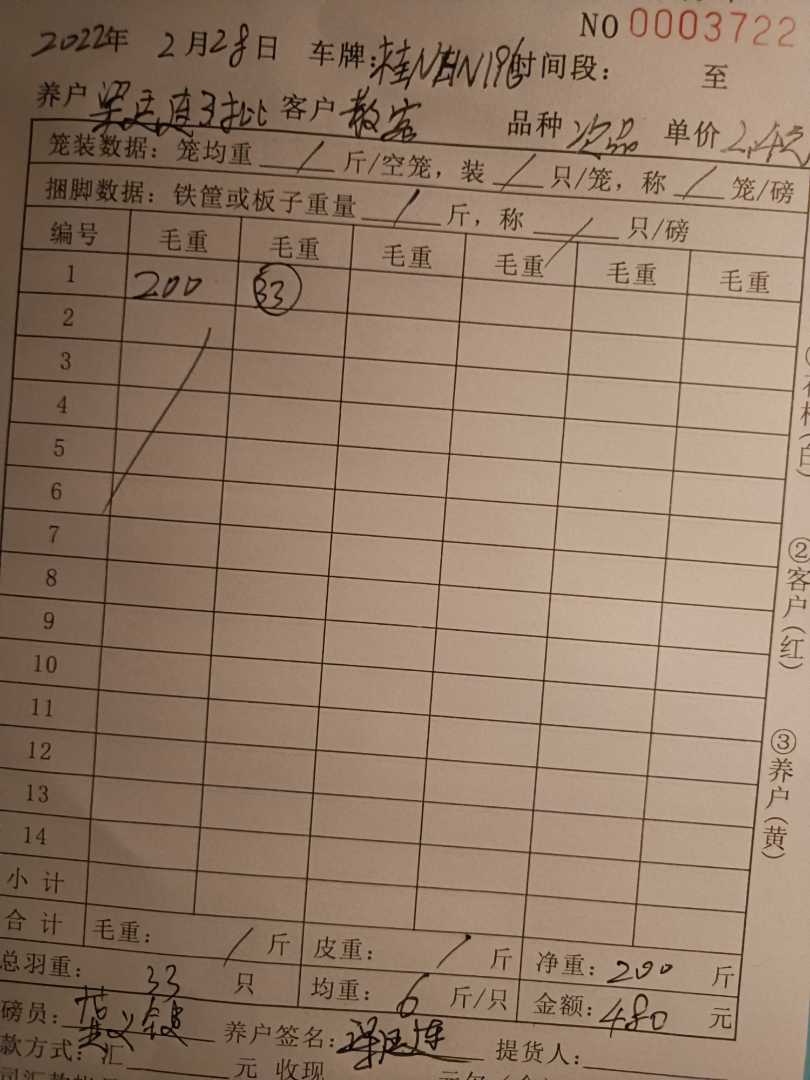 NO 0003722
2022年 2月28日 车牌:桂NHN196时间段: 至
养户 3批 客户 散客 品种 次品 单价 2.4元
笼装数据: 笼均重 / 斤/空笼, 装 / 只/笼, 称 / 笼/磅
捆脚数据: 铁筐或板子重量 / 斤, 称 / 只/磅
编号 毛重 毛重 毛重 毛重 毛重 毛重
1 200 33
2
3
4
5
6
7
8
9
10
11
12
13
14
小计
合计 毛重: / 斤 皮重: / 斤 净重: 200 斤
总羽重: 33 只 均重: 6 斤/只 金额: 480 元
磅员: 养户签名: 提货人:
款方式: 汇 元 收现
②客户(红)
③养户(黄)